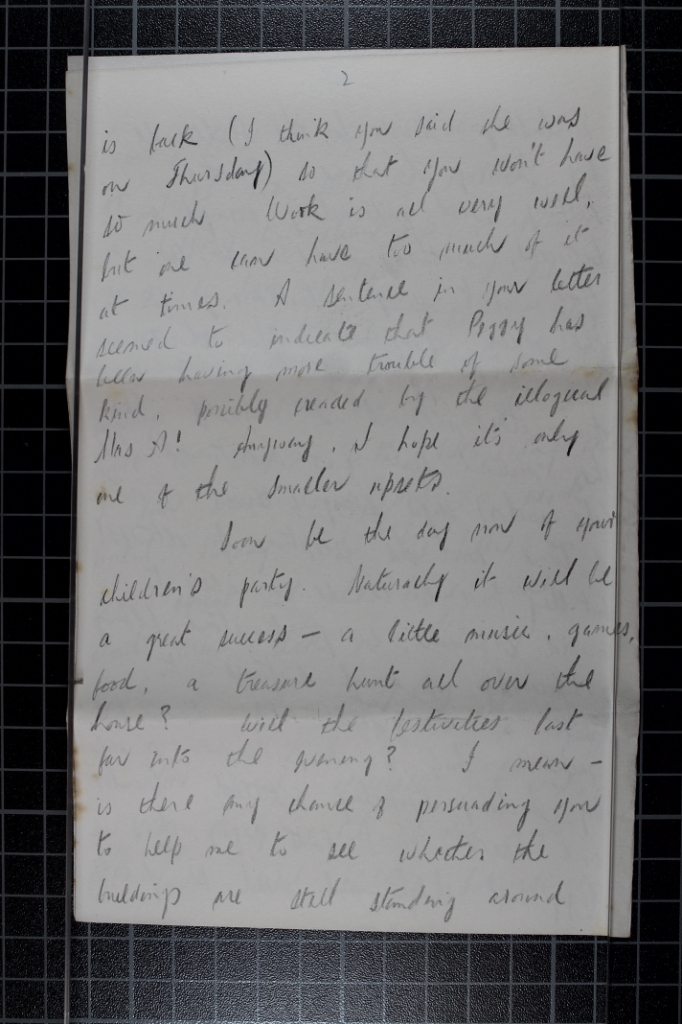 2
is back (I think you said she was
on Thursday) so that you won't have
so much Work is all very well,
but one can have too much of it
at times. A sentence in your letter
seemed to indicate that Peggy has
been having more trouble of some
kind, possibly created by the illogical
Mrs A! Anyway, I hope it's only
one of the smaller upsets.
Soon be the day now of your
children's party. Naturally it will be
a great success — a little music, games,
food, a treasure hunt all over the
house? Will the festivities last
far into the evening? I mean —
is there any chance of persuading you
to help me to see whether the
buildings are still standing around